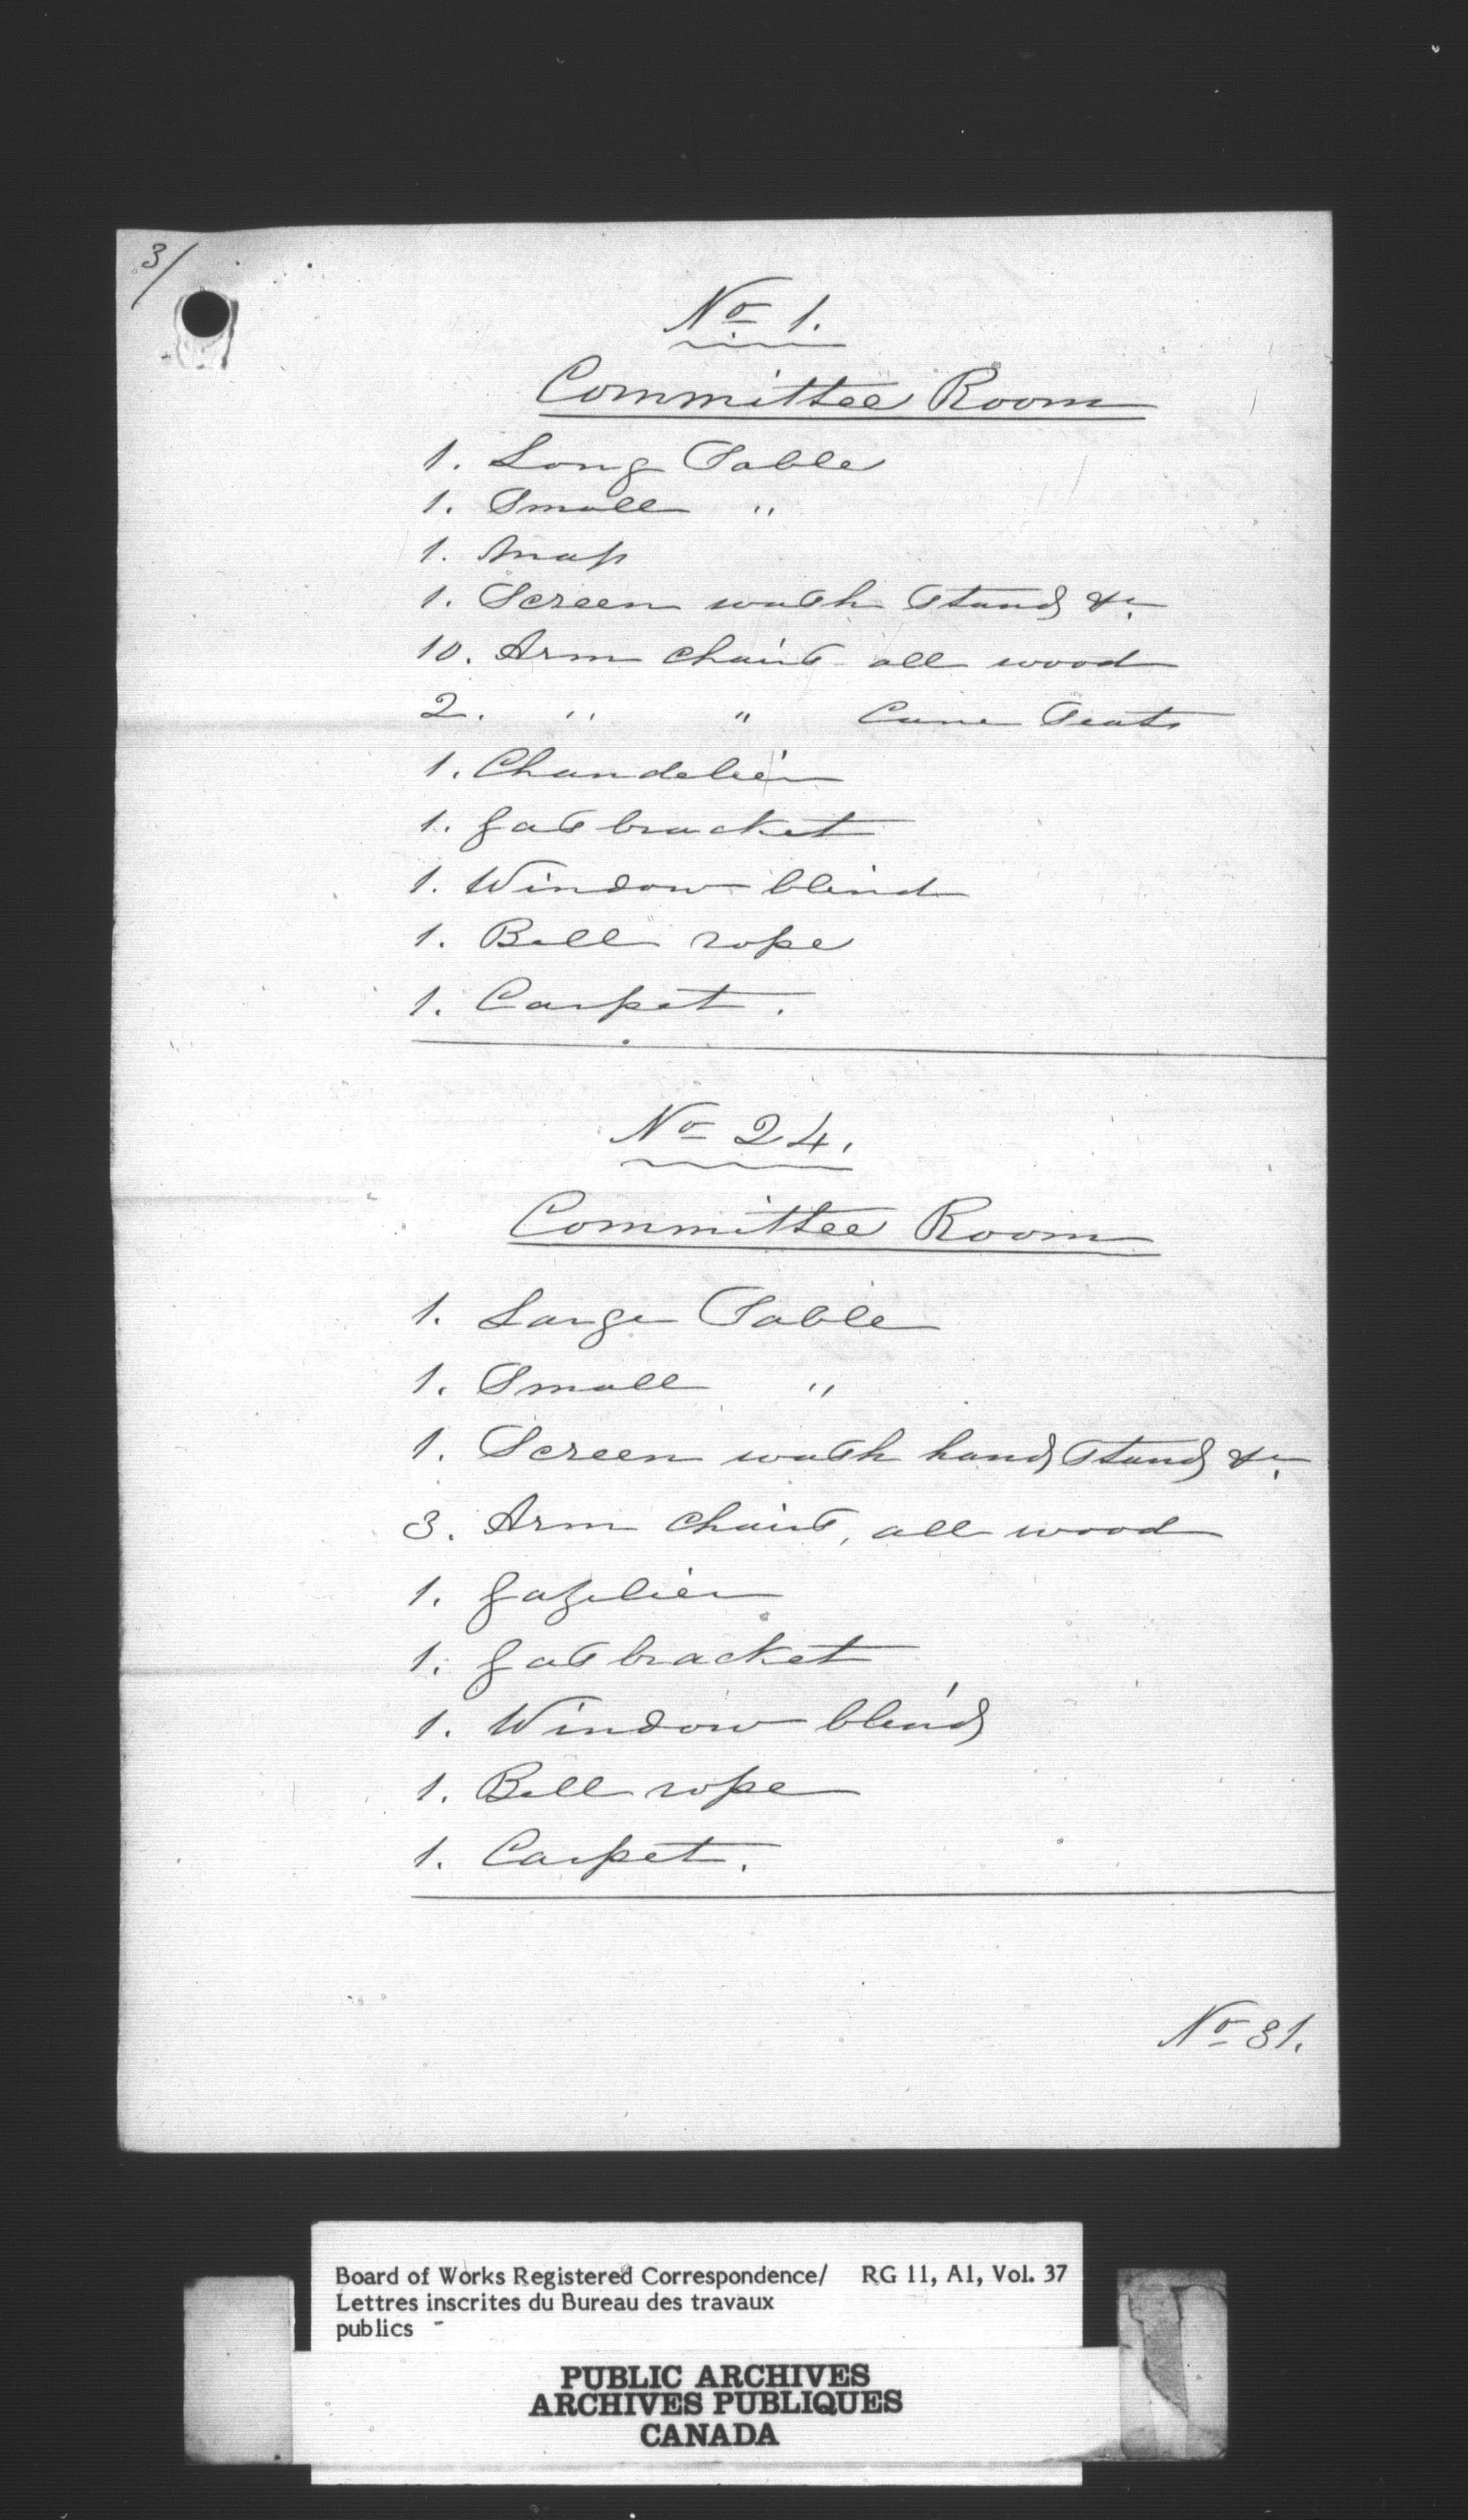 3/
No 1.
Committee Room
1. Long Table
1. Small "
1. Map
1. Screen wash Stand &c.
10. Arm chairs all wood
2. " " Cane Seats
1. Chandelier
1. gas bracket
1. Window blind
1. Bell rope
1. Carpet.
No 24.
Committee Room
1. Large Table
1. Small "
1. Screen wash hand Stand &c.
3. Arm chairs, all wood
1. gazelier
1. gas bracket
1. Window blind
1. Bell rope
1. Carpet.
No 31.
Board of Works Registered Correspondence/ RG 11, A1, Vol. 37
Lettres inscrites du Bureau des travaux
publics -
PUBLIC ARCHIVES
ARCHIVES PUBLIQUES
CANADA